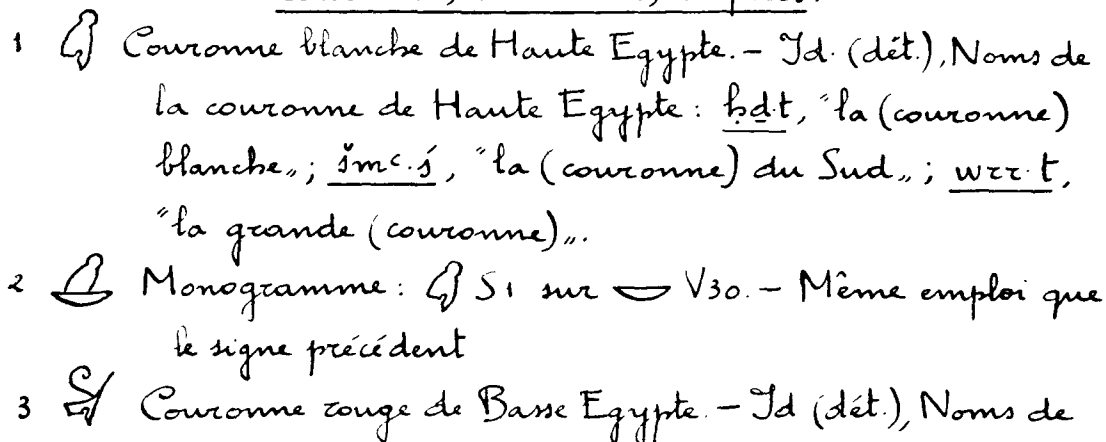 1 𓋑 Couronne blanche de Haute Egypte. – Id. (dét.), Noms de
la couronne de Haute Egypte : ḥḏ.t, "la (couronne)
blanche„ ; šmꜥ.ś, "la (couronne) du Sud„ ; wrr.t,
"la grande (couronne)„.
2 𓋒 Monogramme : 𓋑 S1 sur 𓎟 V30. – Même emploi que
le signe précédent
3 𓋔 Couronne rouge de Basse Egypte. – Id (dét.), Noms de